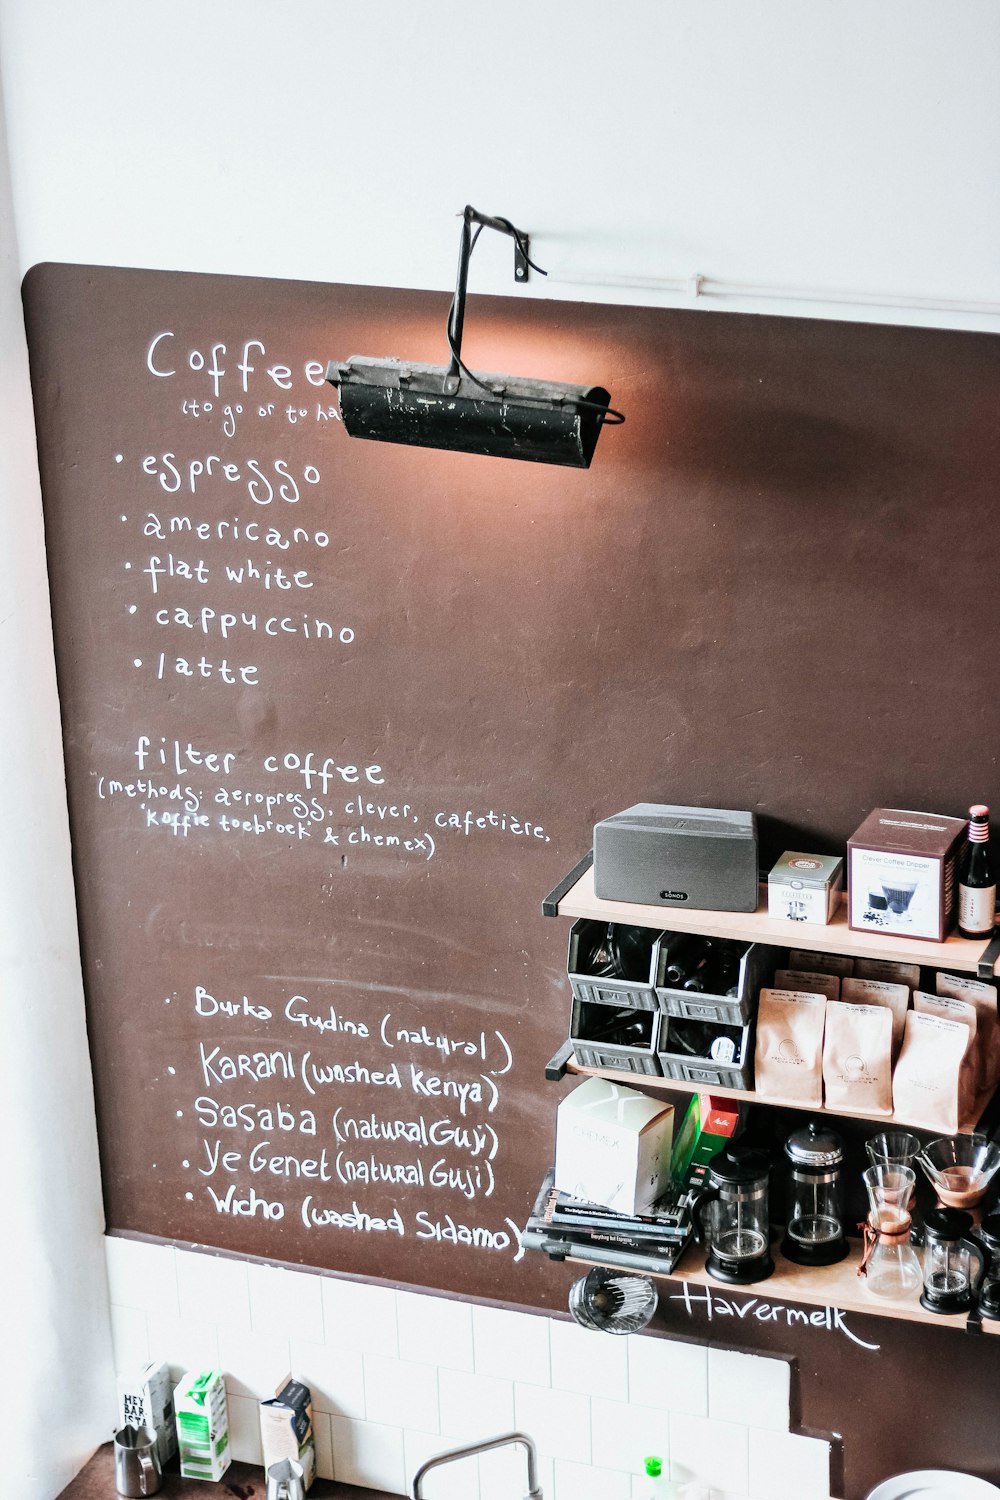 Coffee
(to go or to
• espresso
• americano
• flat white
• cappuccino
• latte
filter coffee
(methods: aeropress, clever, cafetière,
'koffie toebroek' & chemex)
Burka Gudina (natural)
KARANI (washed Kenya)
Sasaba (natural Guji)
Ye Genet (natural Guji)
Wicho (washed Sidamo)
SONOS
Clever Coffee Dripper
CHEMEX
Melitta
Havermelk
HEY
BAR
ISTA